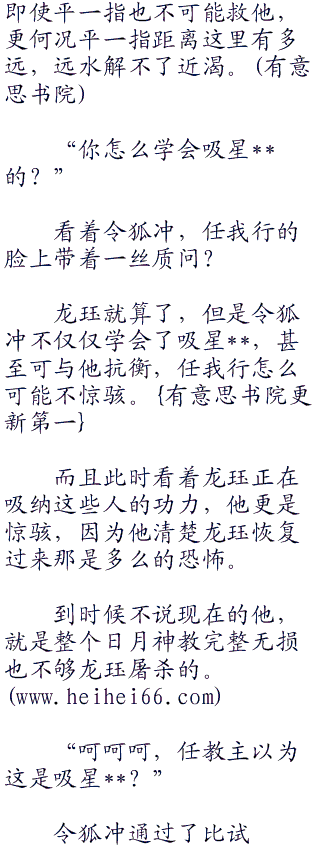 即使平一指也不可能救他，
更何况平一指距离这里有多
远，远水解不了近渴。(有意
思书院)
“你怎么学会吸星**
的？”
看着令狐冲，任我行的
脸上带着一丝质问？
龙珏就算了，但是令狐
冲不仅仅学会了吸星**，甚
至可与他抗衡，任我行怎么
可能不惊骇。{有意思书院更
新第一}
而且此时看着龙珏正在
吸纳这些人的功力，他更是
惊骇，因为他清楚龙珏恢复
过来那是多么的恐怖。
到时候不说现在的他，
就是整个日月神教完整无损
也不够龙珏屠杀的。
(www.heihei66.com)
“呵呵呵，任教主以为
这是吸星**？”
令狐冲通过了比试